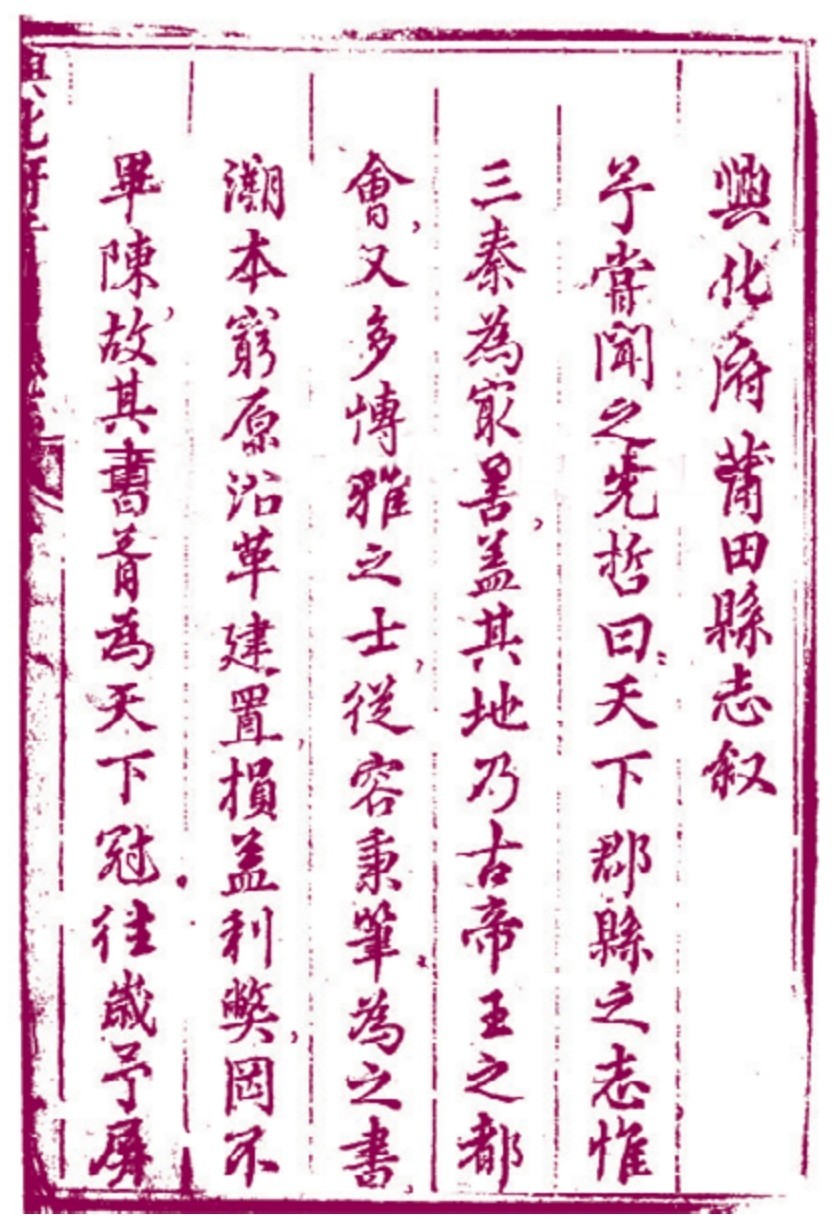 興化府莆田縣志叙
予嘗聞之先哲曰天下郡縣之志惟
三秦為㝡善盖其地乃古帝王之都
會又多博雅之士從容秉筆為之書
溯本窮原沿革建置損益利弊罔不
畢陳故其書胥為天下冠往歲予屏
興化府